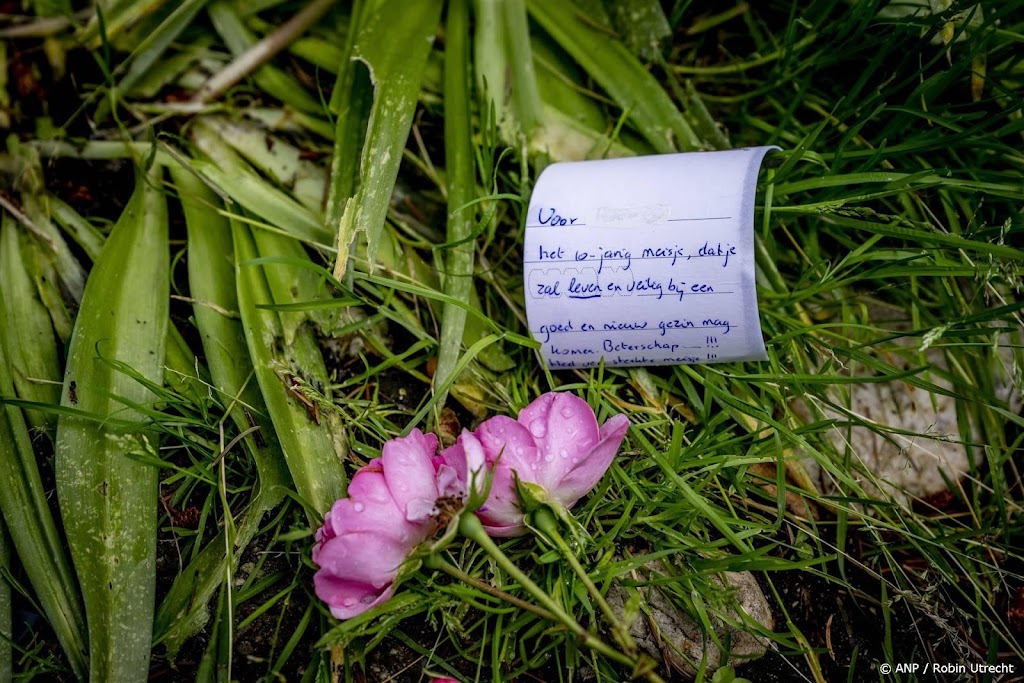 Voor
het 10-jarig meisje, dat je
zal leven en veilig bij een
goed en nieuw gezin mag
komen. Beterschap !!!
Heel veel sterkte meisje !!!
© ANP / Robin Utrecht